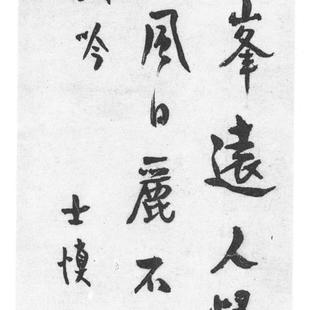 峯遠人
風日麗不
吟
士慎